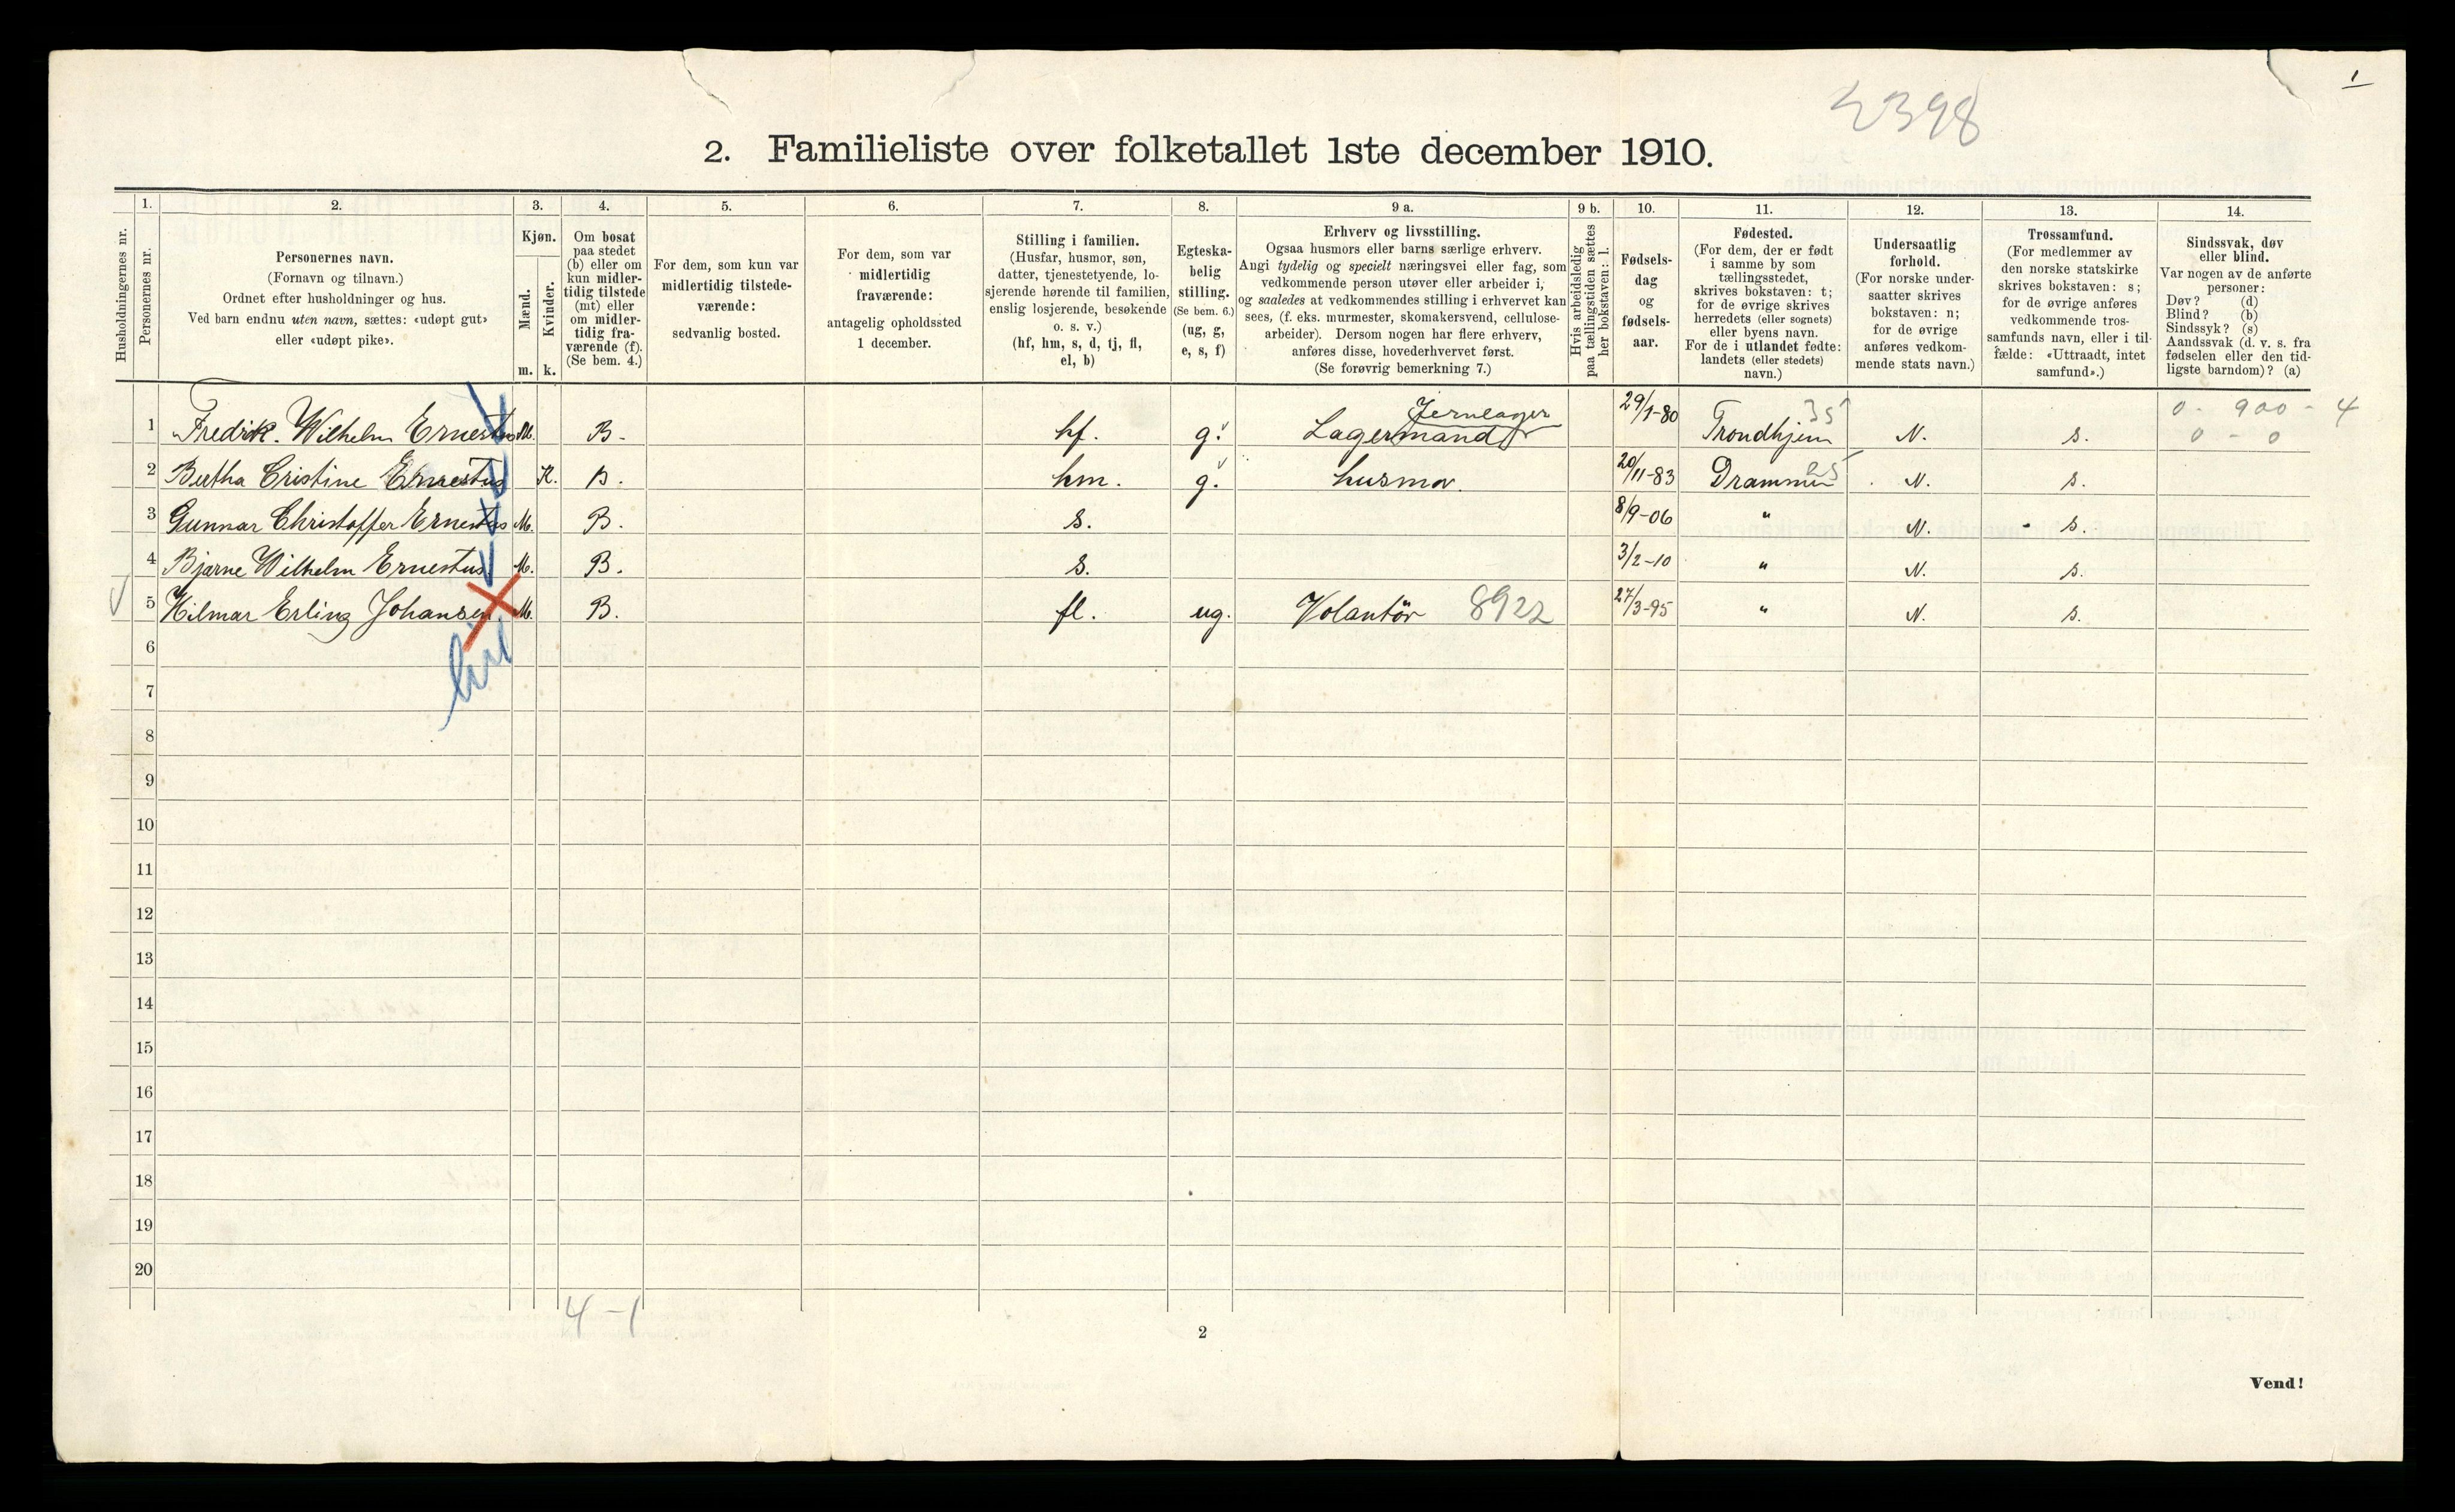 1
2398
2. Familieliste over folketallet 1ste december 1910.
Husholdningernes nr.
1.
Personernes nr.
2.
Personernes navn.
(Fornavn og tilnavn.)
Ordnet efter husholdninger og hus.
Ved barn endnu uten navn, sættes: «udøpt gut»
eller «udøpt pike».
3.
Kjøn.
Mænd.
Kvinder.
m. k.
4.
Om bosat
paa stedet
(b) eller om
kun midler-
tidig tilstede
(mt) eller
om midler-
tidig fra-
værende (f).
(Se bem. 4.)
5.
For dem, som kun var
midlertidig tilstede-
værende:
sedvanlig bosted.
6.
For dem, som var
midlertidig
fraværende:
antagelig opholdssted
1 december.
7.
Stilling i familien.
(Husfar, husmor, søn,
datter, tjenestetyende, lo-
sjerende hørende til familien,
enslig losjerende, besøkende
o. s. v.)
(hf, hm, s, d, tj, fl,
el, b)
8.
Egteska-
belig
stilling.
(Se bem. 6.)
(ug, g,
e, s, f)
9 a.
Erhverv og livsstilling.
Ogsaa husmors eller barns særlige erhverv.
Angi tydelig og specielt næringsvei eller fag, som
vedkommende person utøver eller arbeider i,
og saaledes at vedkommendes stilling i erhvervet kan
sees, (f. eks. murmester, skomakersvend, cellulose-
arbeider). Dersom nogen har flere erhverv,
anføres disse, hovederhvervet først.
(Se forøvrig bemerkning 7.)
9 b.
Hvis arbeidsledig
paa tællingstiden sættes
her bokstaven: l.
10.
Fødsels-
dag
og
fødsels-
aar.
11.
Fødested.
(For dem, der er født
i samme by som
tællingsstedet,
skrives bokstaven: t;
for de øvrige skrives
herredets (eller sognets)
eller byens navn.
For de i utlandet fødte:
landets (eller stedets)
navn.)
12.
Undersaatlig
forhold.
(For norske under-
saatter skrives
bokstaven: n;
for de øvrige
anføres vedkom-
mende stats navn.)
13.
Trossamfund.
(For medlemmer av
den norske statskirke
skrives bokstaven: s;
for de øvrige anføres
vedkommende tros-
samfunds navn, eller i til-
fælde: «Uttraadt, intet
samfund».)
14.
Sindssvak, døv
eller blind.
Var nogen av de anførte
personer:
Døv? (d)
Blind? (b)
Sindssyk? (s)
Aandssvak (d. v. s. fra
fødselen eller den tid-
ligste barndom)? (a)
Jernlager 35 0 - 900 - 4
1 Fredrik. Wilhelm Ernestus M. B. hf. g. Lagermand 29/1-80 Trondhjem N. s. 0 - 0
2 Bertha Cristine Ernestus K. B. hm. g. husmor. 20/11-83 Drammen 25 N. s.
3 Gunnar Christoffer Ernestus M. B. s. 8/9-06 " N. s.
4 Bjarne Wilhelm Ernestus. M. B. s. 3/2-10 " N. s.
5 Hilmar Erling Johansen. M. B. fl. ug. Volantör 8922 27/3-95 " N. s.
6
7
8
9
10
11
12
13
14
15
16
17
18
19
20
4 - 1
2
Vend!